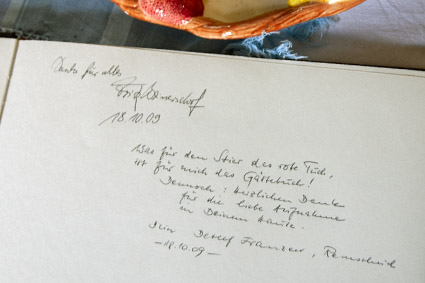 Danke für alles
18.10.09
Was für den Stier das rote Tuch,
ist für mich das Gästebuch!
Dennoch: Herzlichen Dank
für die liebe Aufnahme
in Deinem Hause.
Dein Detlef Franzen, Remscheid
-18.10.09-